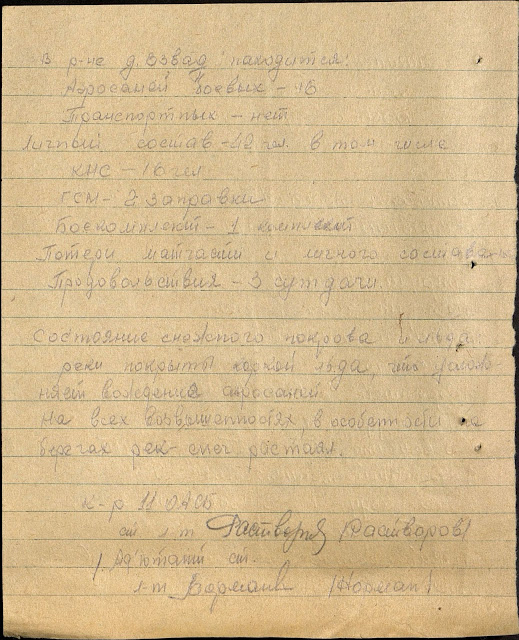 В р-не д. Взвад находится:
Аэросаней боевых - 16
Транспортных - нет
Личный состав - 42 чел. в том числе
КНС - 16 чел
ГСМ - 2 заправки
Боекомплект - 1 комплект
Потери матчасти и личного состава
Продовольствия - 3 сутдачи.
Состояние снежного покрова и льда:
реки покрыты коркой льда, что услож
няет вождение аэросаней
На всех возвышенностях, в особенности на
берегах рек снег растаял.
К-р 11 ОАСБ
ст л-т Растворов (Растворов)
Адъютант ст.
л-т